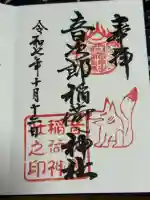 奉拝
音次郎稲荷神社
令和七年十月十二日
稲荷神
社之印